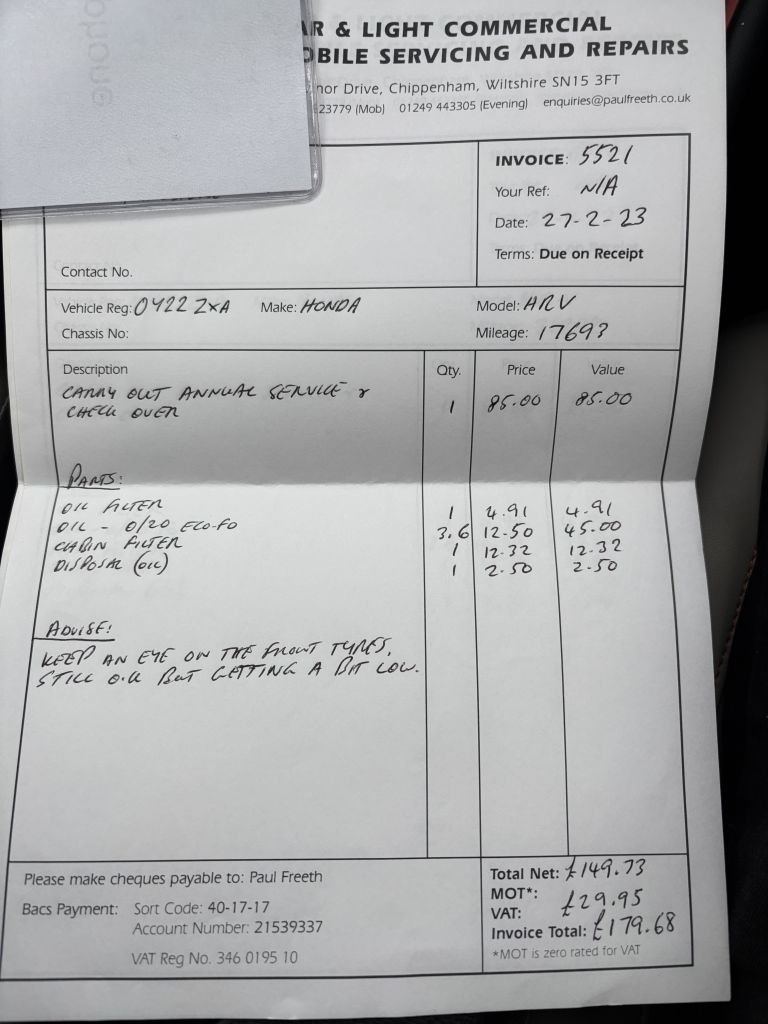 AR & LIGHT COMMERCIAL
OBILE SERVICING AND REPAIRS
nor Drive, Chippenham, Wiltshire SN15 3FT
23779 (Mob) 01249 443305 (Evening) enquiries@paulfreeth.co.uk
INVOICE: 5521
Your Ref: N/A
Date: 27-2-23
Terms: Due on Receipt
Contact No.
Vehicle Reg: OY22 ZXA Make: HONDA Model: HRV
Chassis No: Mileage: 17693
Description Qty. Price Value
CARRY OUT ANNUAL SERVICE &
CHECK OVER 1 85.00 85.00
PARTS:
OIL FILTER 1 4.91 4.91
OIL - 0/20 ECO-FO 3.6 12.50 45.00
CABIN FILTER 1 12.32 12.32
DISPOSAL (OIL) 1 2-50 2-50
ADVISE:
KEEP AN EYE ON THE FRONT TYRES,
STILL O.K BUT GETTING A BIT LOW.
Please make cheques payable to: Paul Freeth
Bacs Payment: Sort Code: 40-17-17
Account Number: 21539337
VAT Reg No. 346 0195 10
Total Net: £149.73
MOT*:
VAT: £29.95
Invoice Total: £179.68
*MOT is zero rated for VAT